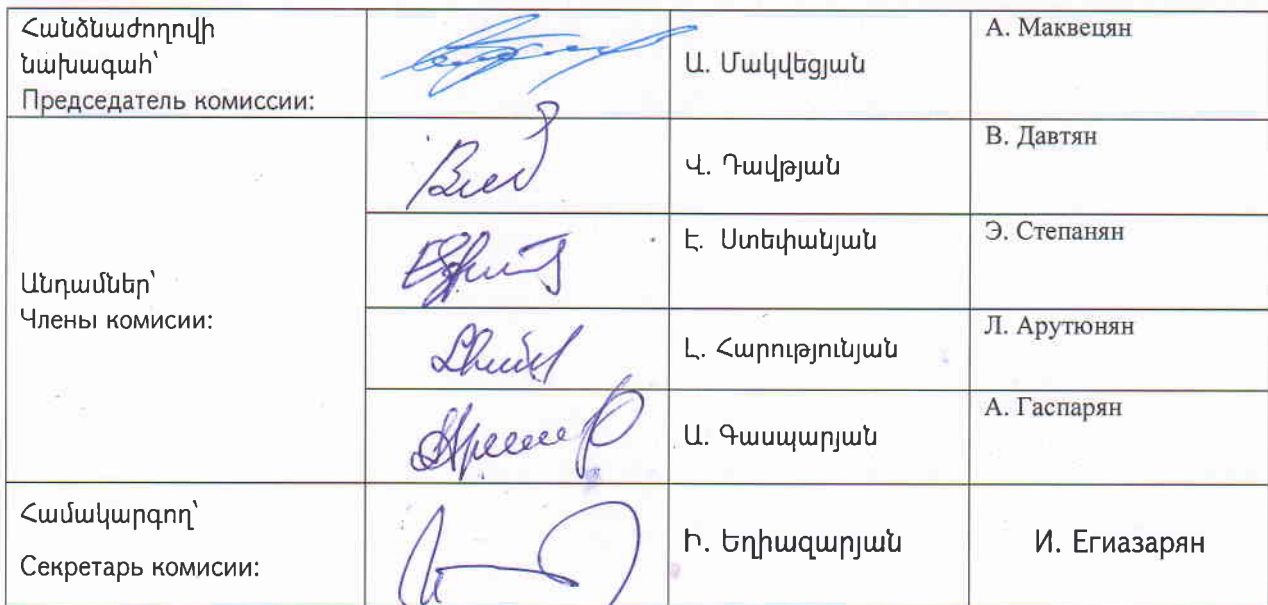 Հանձնաժողովի
նախագահ՝
Председатель комиссии:
Ա. Մակվեցյան
А. Маквецян
Անդամներ՝
Члены комисии:
Վ. Դավթյան
В. Давтян
Է. Ստեփանյան
Э. Степанян
Լ. Հարությունյան
Л. Арутюнян
Ա. Գասպարյան
А. Гаспарян
Համակարգող՝
Секретарь комисии:
Ի. Եղիազարյան
И. Егиазарян